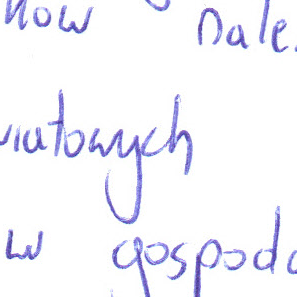 now nale
wiatowych
w gospoda